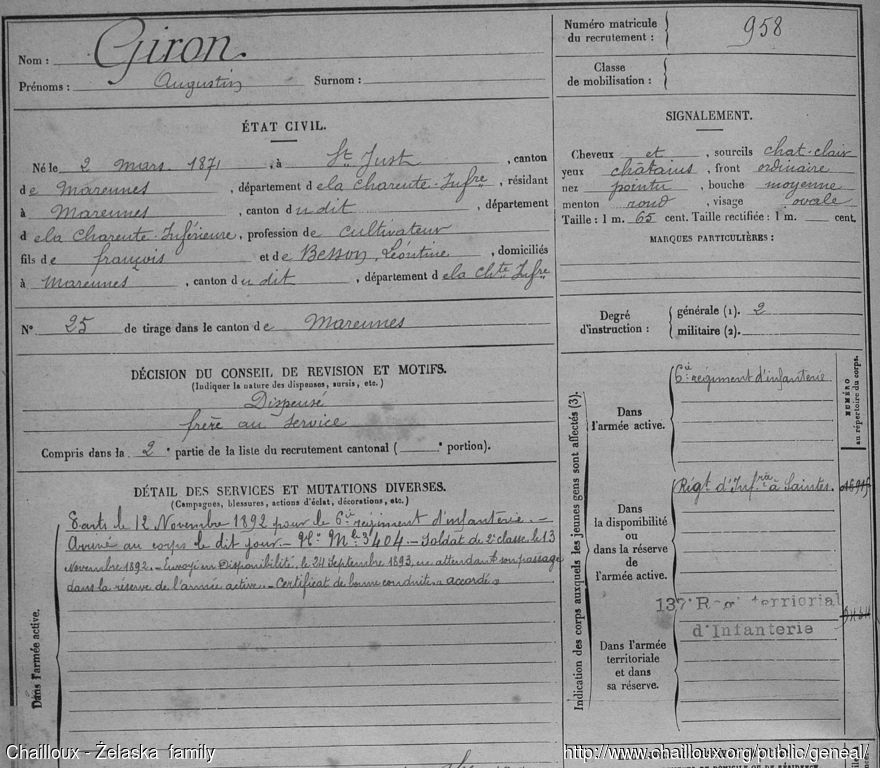 Nom : Giron
Prénoms : Augustin Surnom :
ÉTAT CIVIL.
Né le 2 mars 1871, à St Just, canton
de Marennes, département de la Charente-Infre, résidant
à Marennes, canton du dit, département
de la Charente-Inférieure, profession de cultivateur
fils de françois et de Besson, Léontine, domiciliés
à Marennes, canton du dit, département de la Chte Infre
N° 25 de tirage dans le canton de Marennes
DÉCISION DU CONSEIL DE REVISION ET MOTIFS.
(Indiquer la nature des dispenses, sursis, etc.)
Dispensé
frère au service
Compris dans la 2e partie de la liste du recrutement cantonal ( e portion).
DÉTAIL DES SERVICES ET MUTATIONS DIVERSES.
(Campagnes, blessures, actions d'éclat, décorations, etc.)
Dans l'armée active.
Parti le 12 Novembre 1892 pour le 6e régiment d'infanterie. –
Arrivé au corps le dit jour. – No Mle 3404. – Soldat de 2e classe le 13
Novembre 1892. – Envoyé en Disponibilité, le 24 Septembre 1893, en attendant son passage
dans la réserve de l'armée active. – Certificat de bonne conduite « accordé »
Numéro matricule
du recrutement : 958
Classe
de mobilisation :
SIGNALEMENT.
Cheveux et, sourcils chat-clair
yeux châtains, front ordinaire
nez pointu, bouche moyenne
menton rond, visage ovale
Taille : 1 m. 65 cent. Taille rectifiée : 1 m. cent.
MARQUES PARTICULIÈRES :
Degré
d'instruction :
générale (1). 2
militaire (2).
Indication des corps auxquels les jeunes gens sont affectés (3).
NUMÉRO
au répertoire du corps.
Dans
l'armée active.
6e régiment d'infanterie
Dans
la disponibilité
ou
dans la réserve
de
l'armée active.
Régt d'Infrie à Saintes.
Dans l'armée
territoriale
et dans
sa réserve.
137e Regt territorial
d'Infanterie
Chailloux - Żelaska family
http://www.chailloux.org/public/geneal/